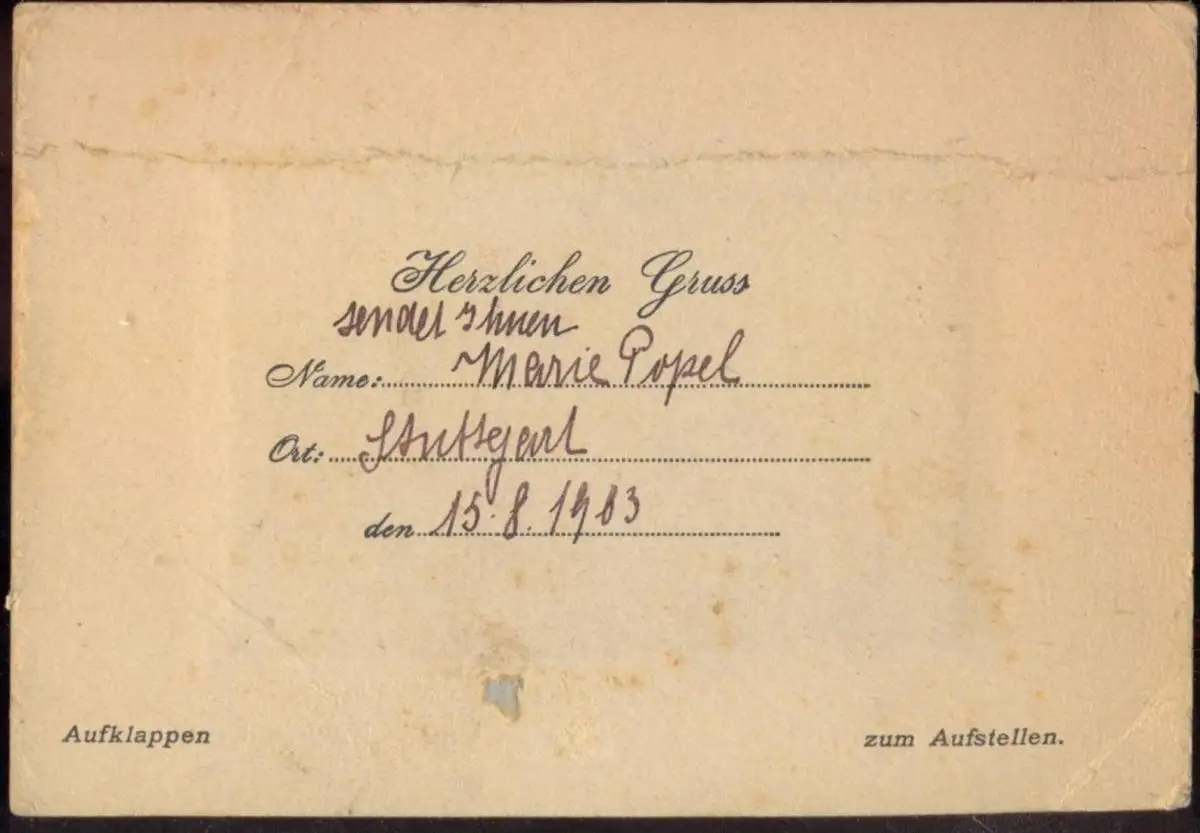 Herzlichen Gruss
sendet Ihnen
Name: Marie Popel
Ort: Stuttgart
den 15.8.1903
Aufklappen zum Aufstellen.